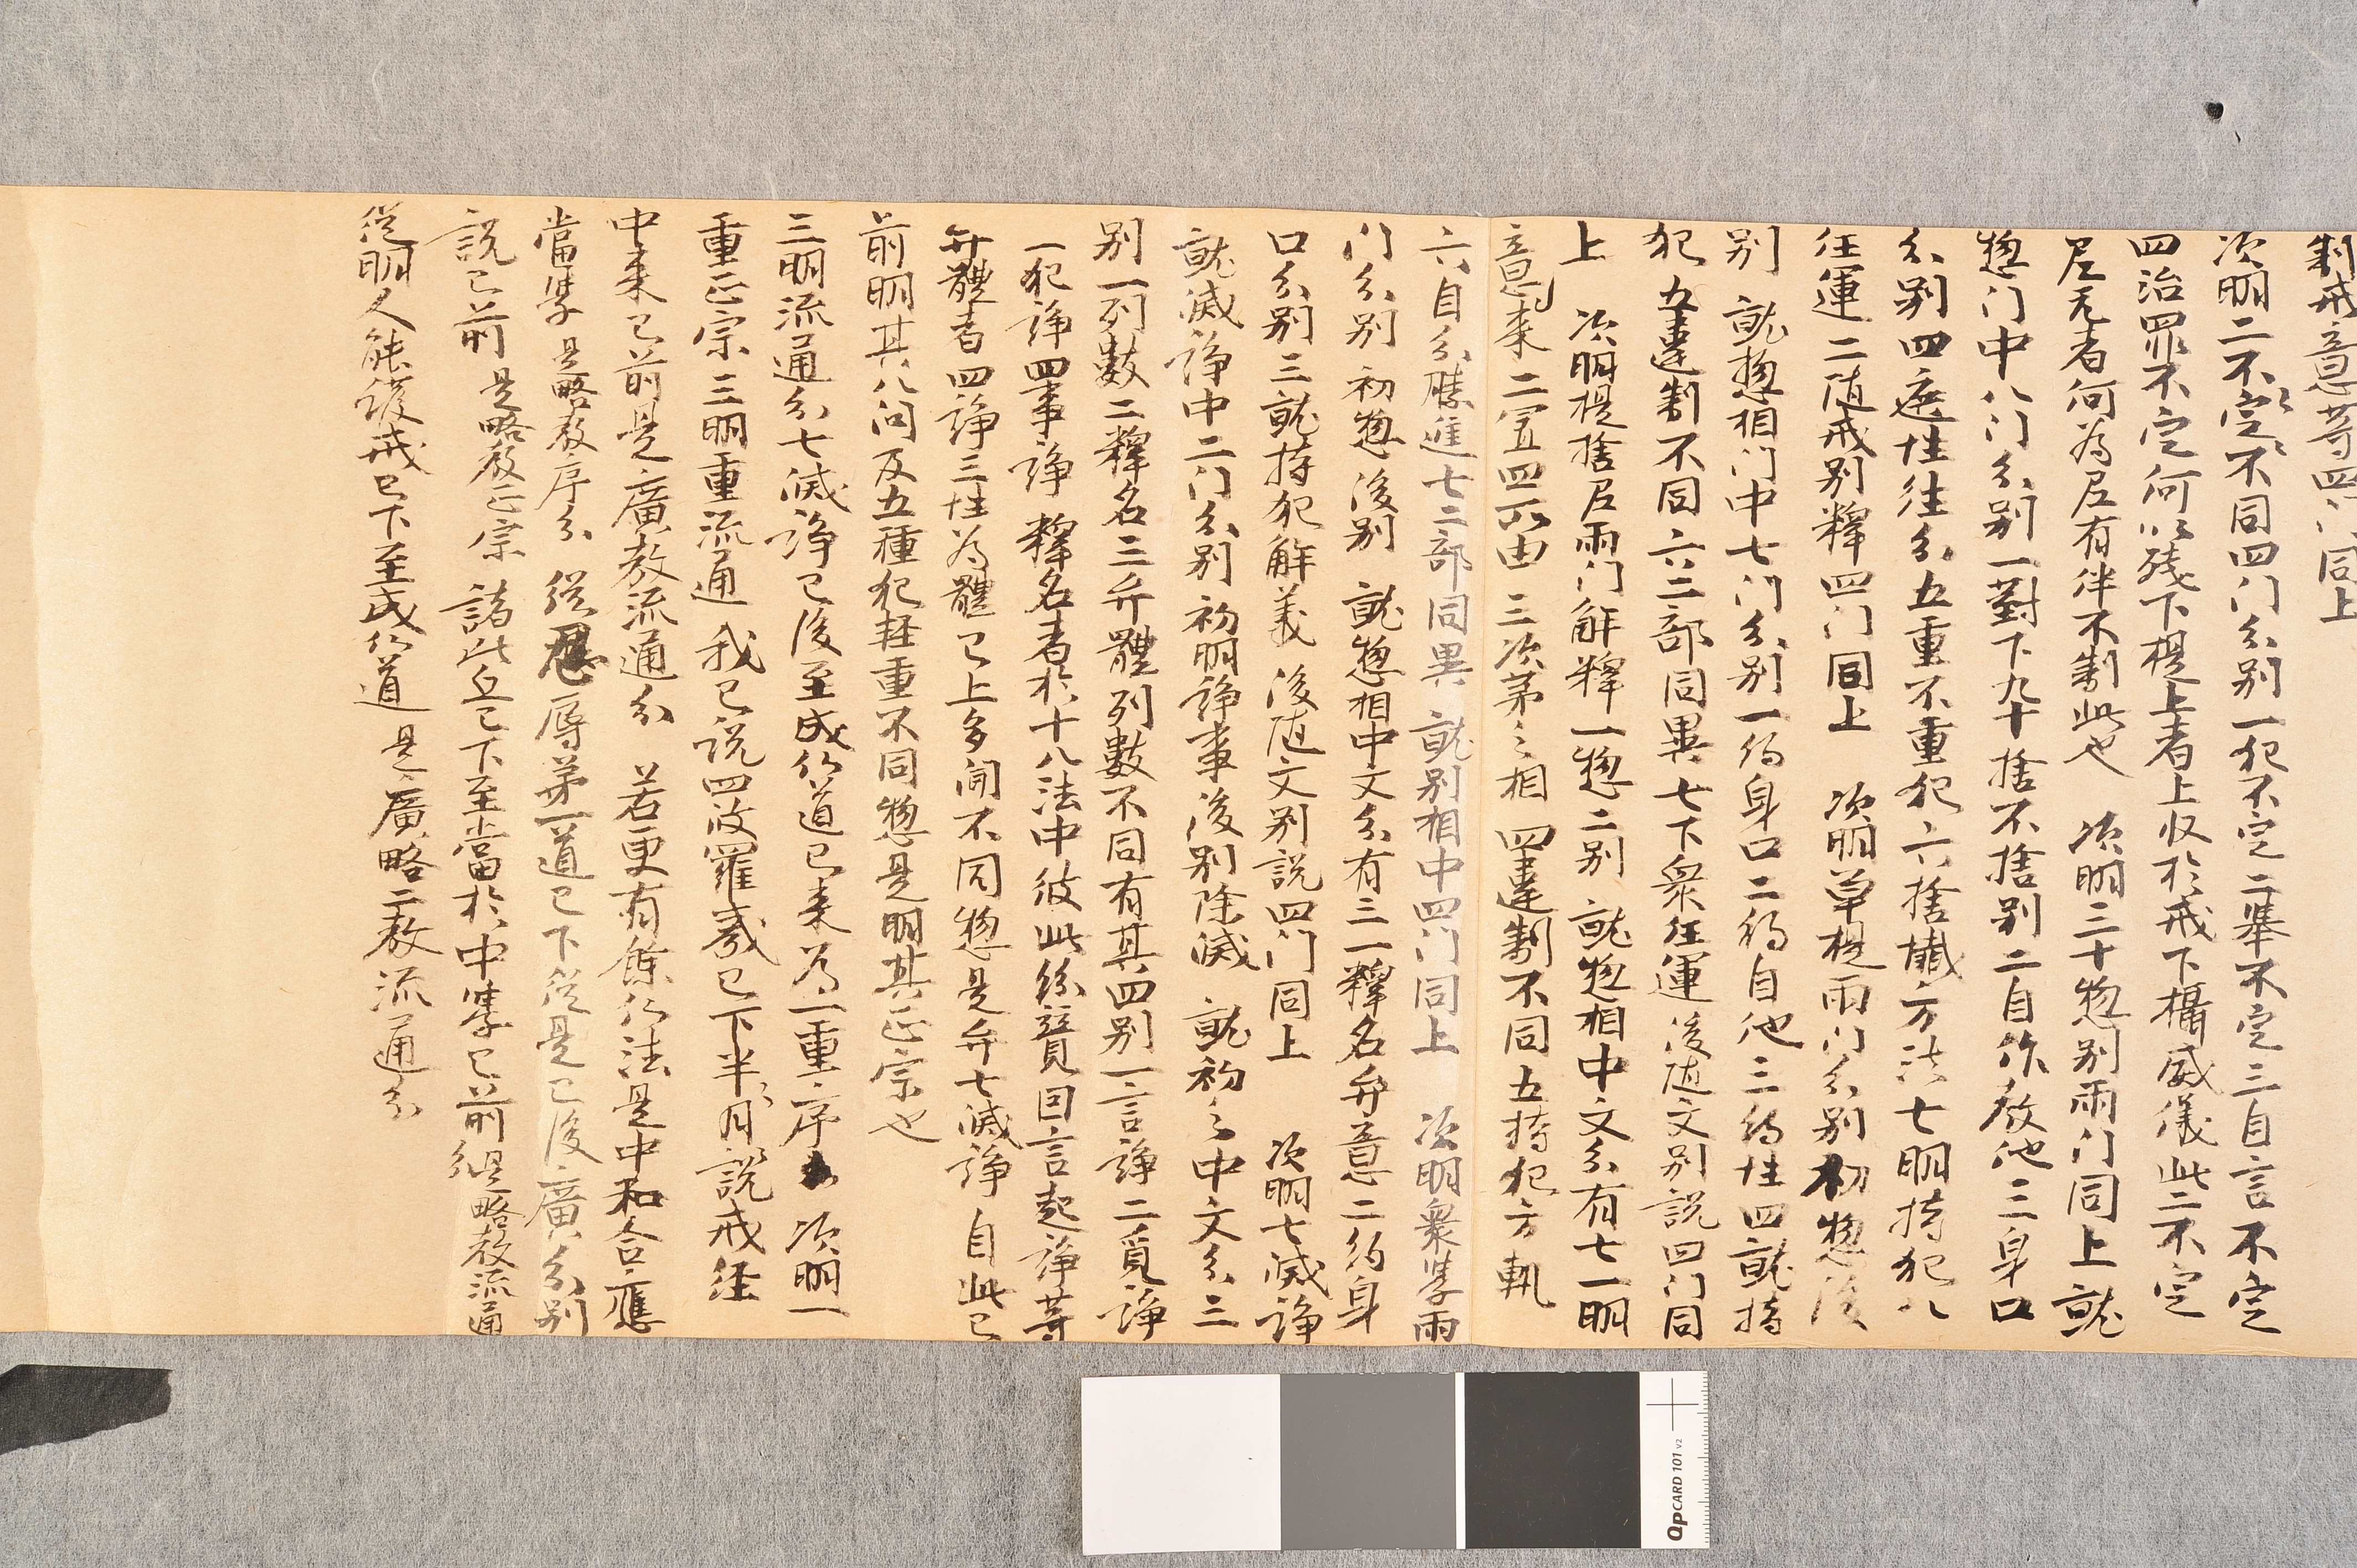 制戒意等四门同上
次明二不定不同四门分别一犯不定二舉不定三自言不定
四治罪不定何以残下提上者上收於戒下攝威儀此二不定
尼无者何為尼有伴不制此也 次明三十惣别兩门同上就
惣门中八门分别一對下九十捨不捨别二自作教他三身口
分别四遮性往分五重不重犯六捨懴方法七明持犯八
任運二随戒别釋四门同上 次明單提兩门分别初惣後
别 就惣相门中七门分别一約身口二約自他三約性四就持
犯五違制不同六二部同異七下衆任運後随文别説四门同
上 次明提捨尼兩门解釋一惣二别 就惣相中文分有七一明
意来二置四所由三次第之相四違制不同五持犯方軌
六自分勝進七二部同異 就别相中四门同上 次明衆學兩
门分别 初惣後别 就惣相中文分有三一釋名弁意二約身
口分别三就持犯解義 後随文别説四门同上 次明七滅諍
就滅諍中二门分别 初明諍事後别除滅 就初之中文分三
别一列數二釋名三弁體列數不同有其四别一言諍二覓諍
一犯諍四事諍 釋名者於十八法中彼此紛競回言起諍等
弁體者四諍三性為體已上多開不同惣是弁七滅諍 自此已
前明其八问及五種犯軽重不同惣是明其正宗也
三明流通分七滅諍已後至成仏道已来為一重序 次明一
重正宗三明重流通 我已説四波羅夷已下半月說戒経
中来已前是廣教流通分 若更有餘仏法是中和合應
當學是略教序分 從忍辱第一道已下從是已後廣分别
説已前是略教正宗 諸比丘已下至當於中學已前是略教流通
從明人能護戒已下至成仏道是廣略二教流通分